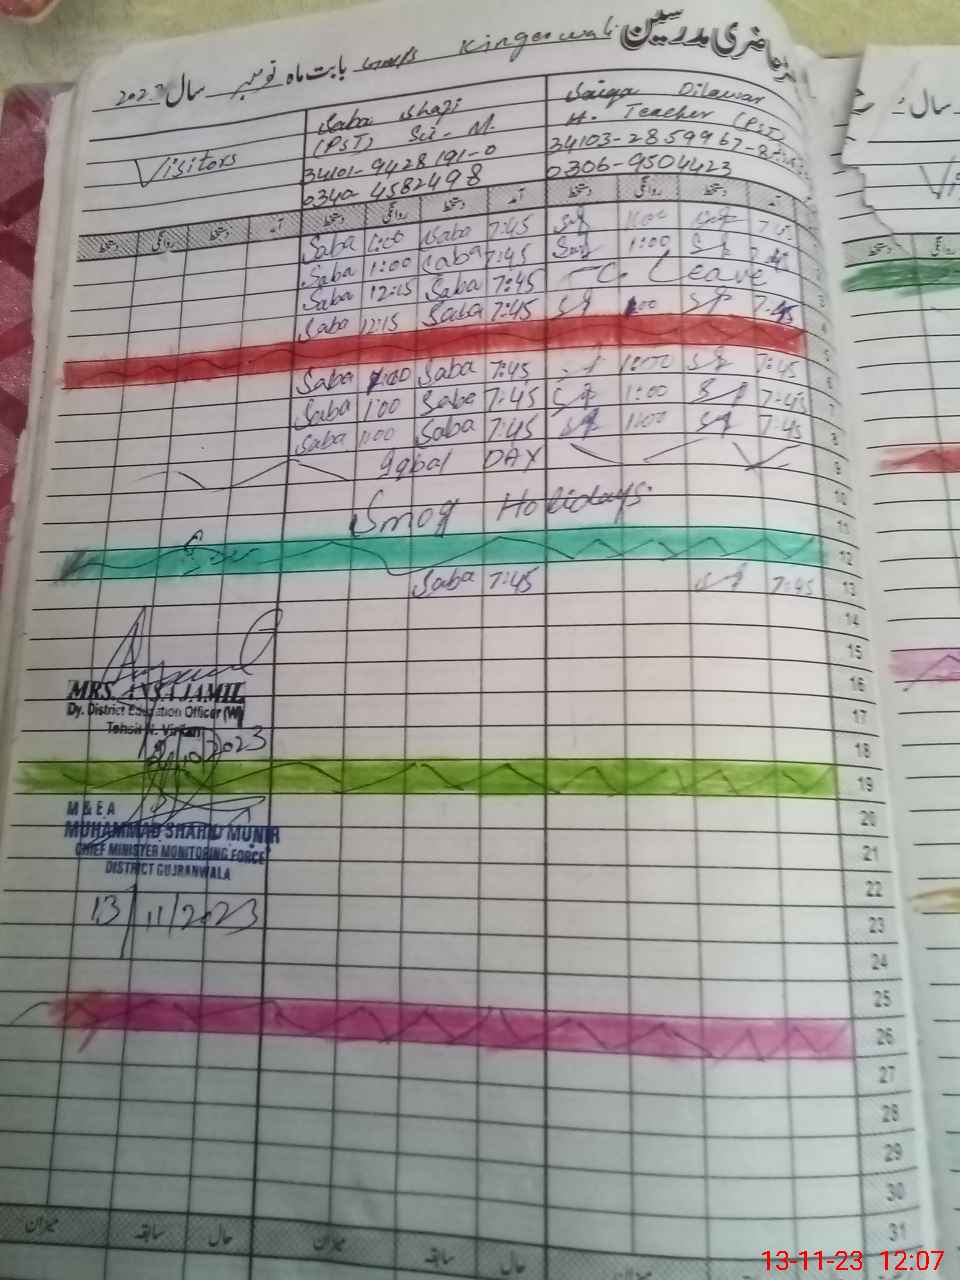 حاضری مدرسین Kingerwali بابت ماہ نومبر سال 2023
Visitors
Saba Shafi
(PST) Sci-M.
34101-9428191-0
0340-4582498
Saiqa Dilawar
H. Teacher (PST)
34103-2859967-8
0306-9504423
دستخط روانگی دستخط آمد دستخط روانگی دستخط آمد دستخط روانگی دستخط آمد
Saba 1:00 Saba 7:45 1:00
Saba 1:00 Saba 7:45 1:00
Saba 12:15 Saba 7:45 C. Leave 3
Saba 12:15 Saba 7:45 1:00 7:45 4
5
Saba 1:00 Saba 7:45 1:00 7:45 6
Saba 1:00 Saba 7:45 1:00 7:45 7
Saba 1:00 Saba 7:45 1:00 7:45 8
Iqbal DAY 9
10
Smog Holidays 11
12
Saba 7:45 7:45 13
14
15
16
17
18
19
20
21
22
23
24
25
26
27
28
29
30
31
MRS. ANSA JAMIL
Dy. District Education Officer (W)
Tehsil N. Virkan
M & E A
MUHAMMAD SHAHID MUNIR
CHIEF MINISTER MONITORING FORCE
DISTRICT GUJRANWALA
13/11/2023
میزان سابقہ حال میزان سابقہ حال میزان
سال
13-11-23 12:07